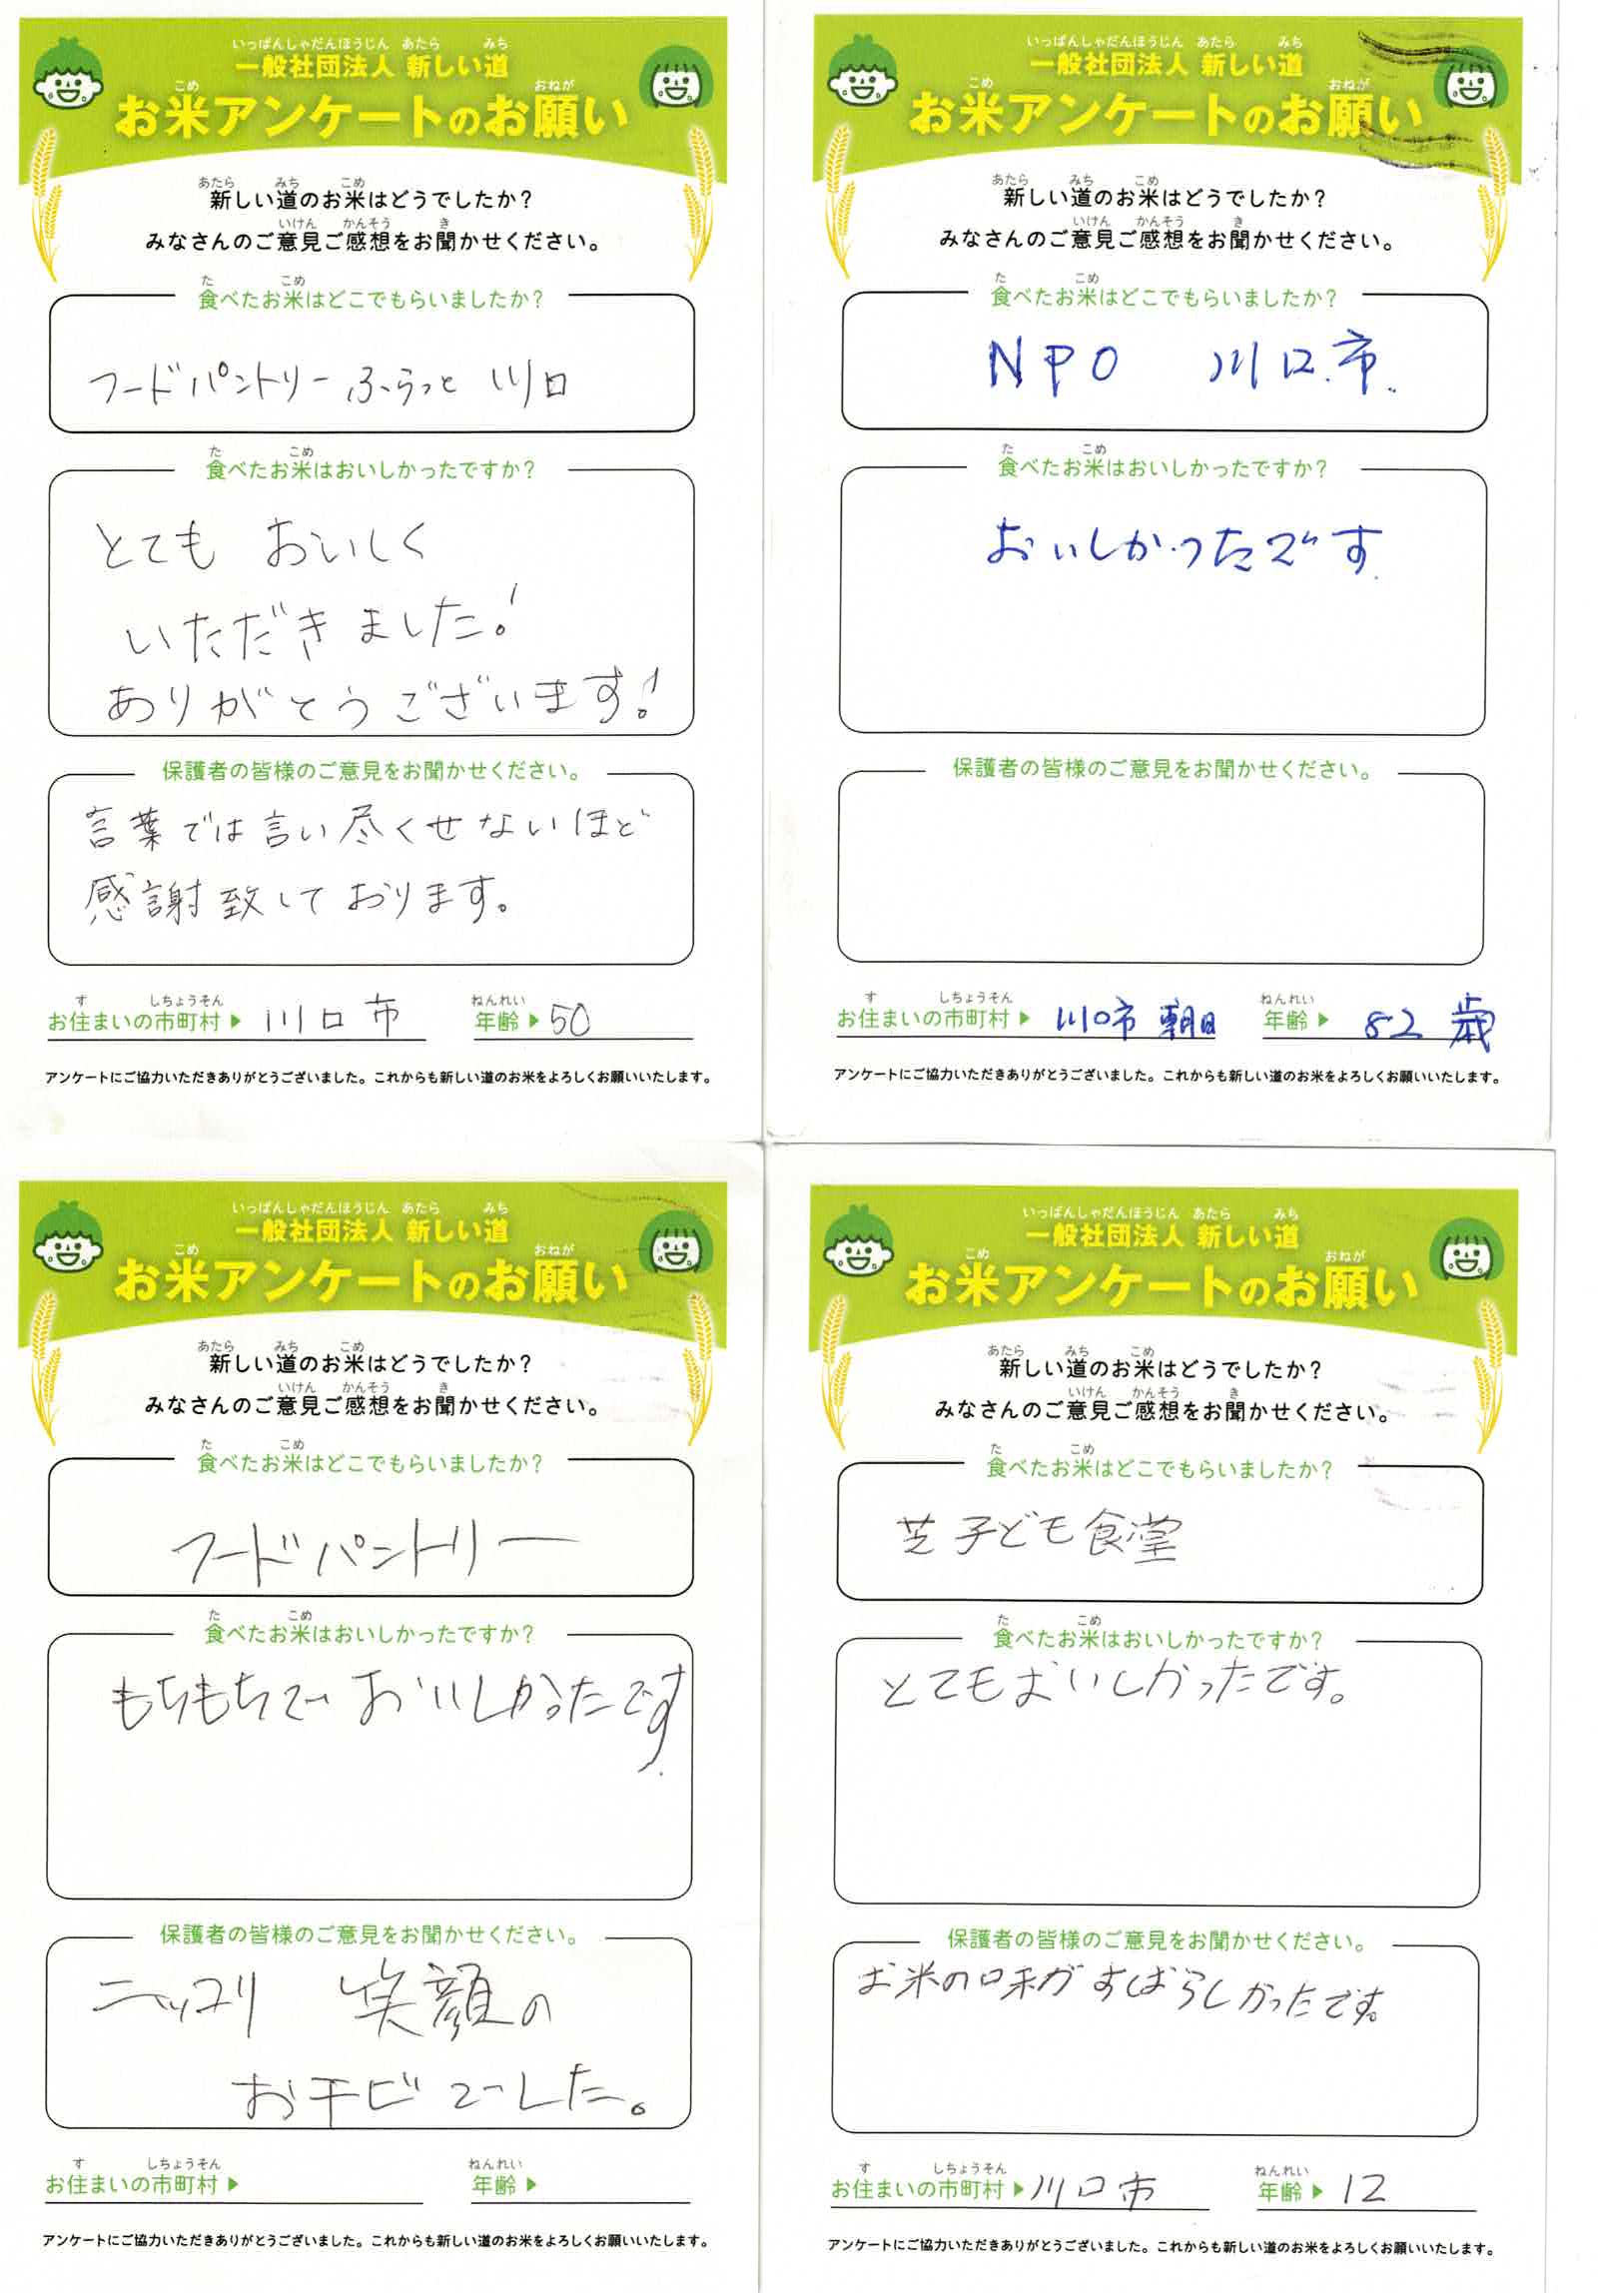 いっぱんしゃだんほうじん あたら みち
一般社団法人 新しい道
こめ おねが
お米アンケートのお願い
あたら みち こめ
新しい道のお米はどうでしたか？
いけん かんそう き
みなさんのご意見ご感想をお聞かせください。
た こめ
食べたお米はどこでもらいましたか？
フードパントリーふらっと川口
た こめ
食べたお米はおいしかったですか？
とても おいしく
いただきました！
ありがとうございます！
保護者の皆様のご意見をお聞かせください。
言葉では言い尽くせないほど
感謝致しております。
す しちょうそん ねんれい
お住まいの市町村▶ 川口市 年齢▶50
アンケートにご協力いただきありがとうございました。これからも新しい道のお米をよろしくお願いいたします。
いっぱんしゃだんほうじん あたら みち
一般社団法人 新しい道
こめ おねが
お米アンケートのお願い
あたら みち こめ
新しい道のお米はどうでしたか？
いけん かんそう き
みなさんのご意見ご感想をお聞かせください。
た こめ
食べたお米はどこでもらいましたか？
NPO 川口市.
た こめ
食べたお米はおいしかったですか？
おいしかったです
保護者の皆様のご意見をお聞かせください。
す しちょうそん ねんれい
お住まいの市町村▶ 川口市 朝日 年齢▶ 82歳
アンケートにご協力いただきありがとうございました。これからも新しい道のお米をよろしくお願いいたします。
いっぱんしゃだんほうじん あたら みち
一般社団法人 新しい道
こめ おねが
お米アンケートのお願い
あたら みち こめ
新しい道のお米はどうでしたか？
いけん かんそう き
みなさんのご意見ご感想をお聞かせください。
た こめ
食べたお米はどこでもらいましたか？
フードパントリー
た こめ
食べたお米はおいしかったですか？
もちもちで おいしかったです
保護者の皆様のご意見をお聞かせください。
ニッコリ 笑顔の
おチビでした。
す しちょうそん ねんれい
お住まいの市町村▶ 年齢▶
アンケートにご協力いただきありがとうございました。これからも新しい道のお米をよろしくお願いいたします。
いっぱんしゃだんほうじん あたら みち
一般社団法人 新しい道
こめ おねが
お米アンケートのお願い
あたら みち こめ
新しい道のお米はどうでしたか？
いけん かんそう き
みなさんのご意見ご感想をお聞かせください。
た こめ
食べたお米はどこでもらいましたか？
芝子ども食堂
た こめ
食べたお米はおいしかったですか？
とてもおいしかったです。
保護者の皆様のご意見をお聞かせください。
お米の味がすばらしかったです。
す しちょうそん ねんれい
お住まいの市町村▶川口市 年齢▶ 12
アンケートにご協力いただきありがとうございました。これからも新しい道のお米をよろしくお願いいたします。